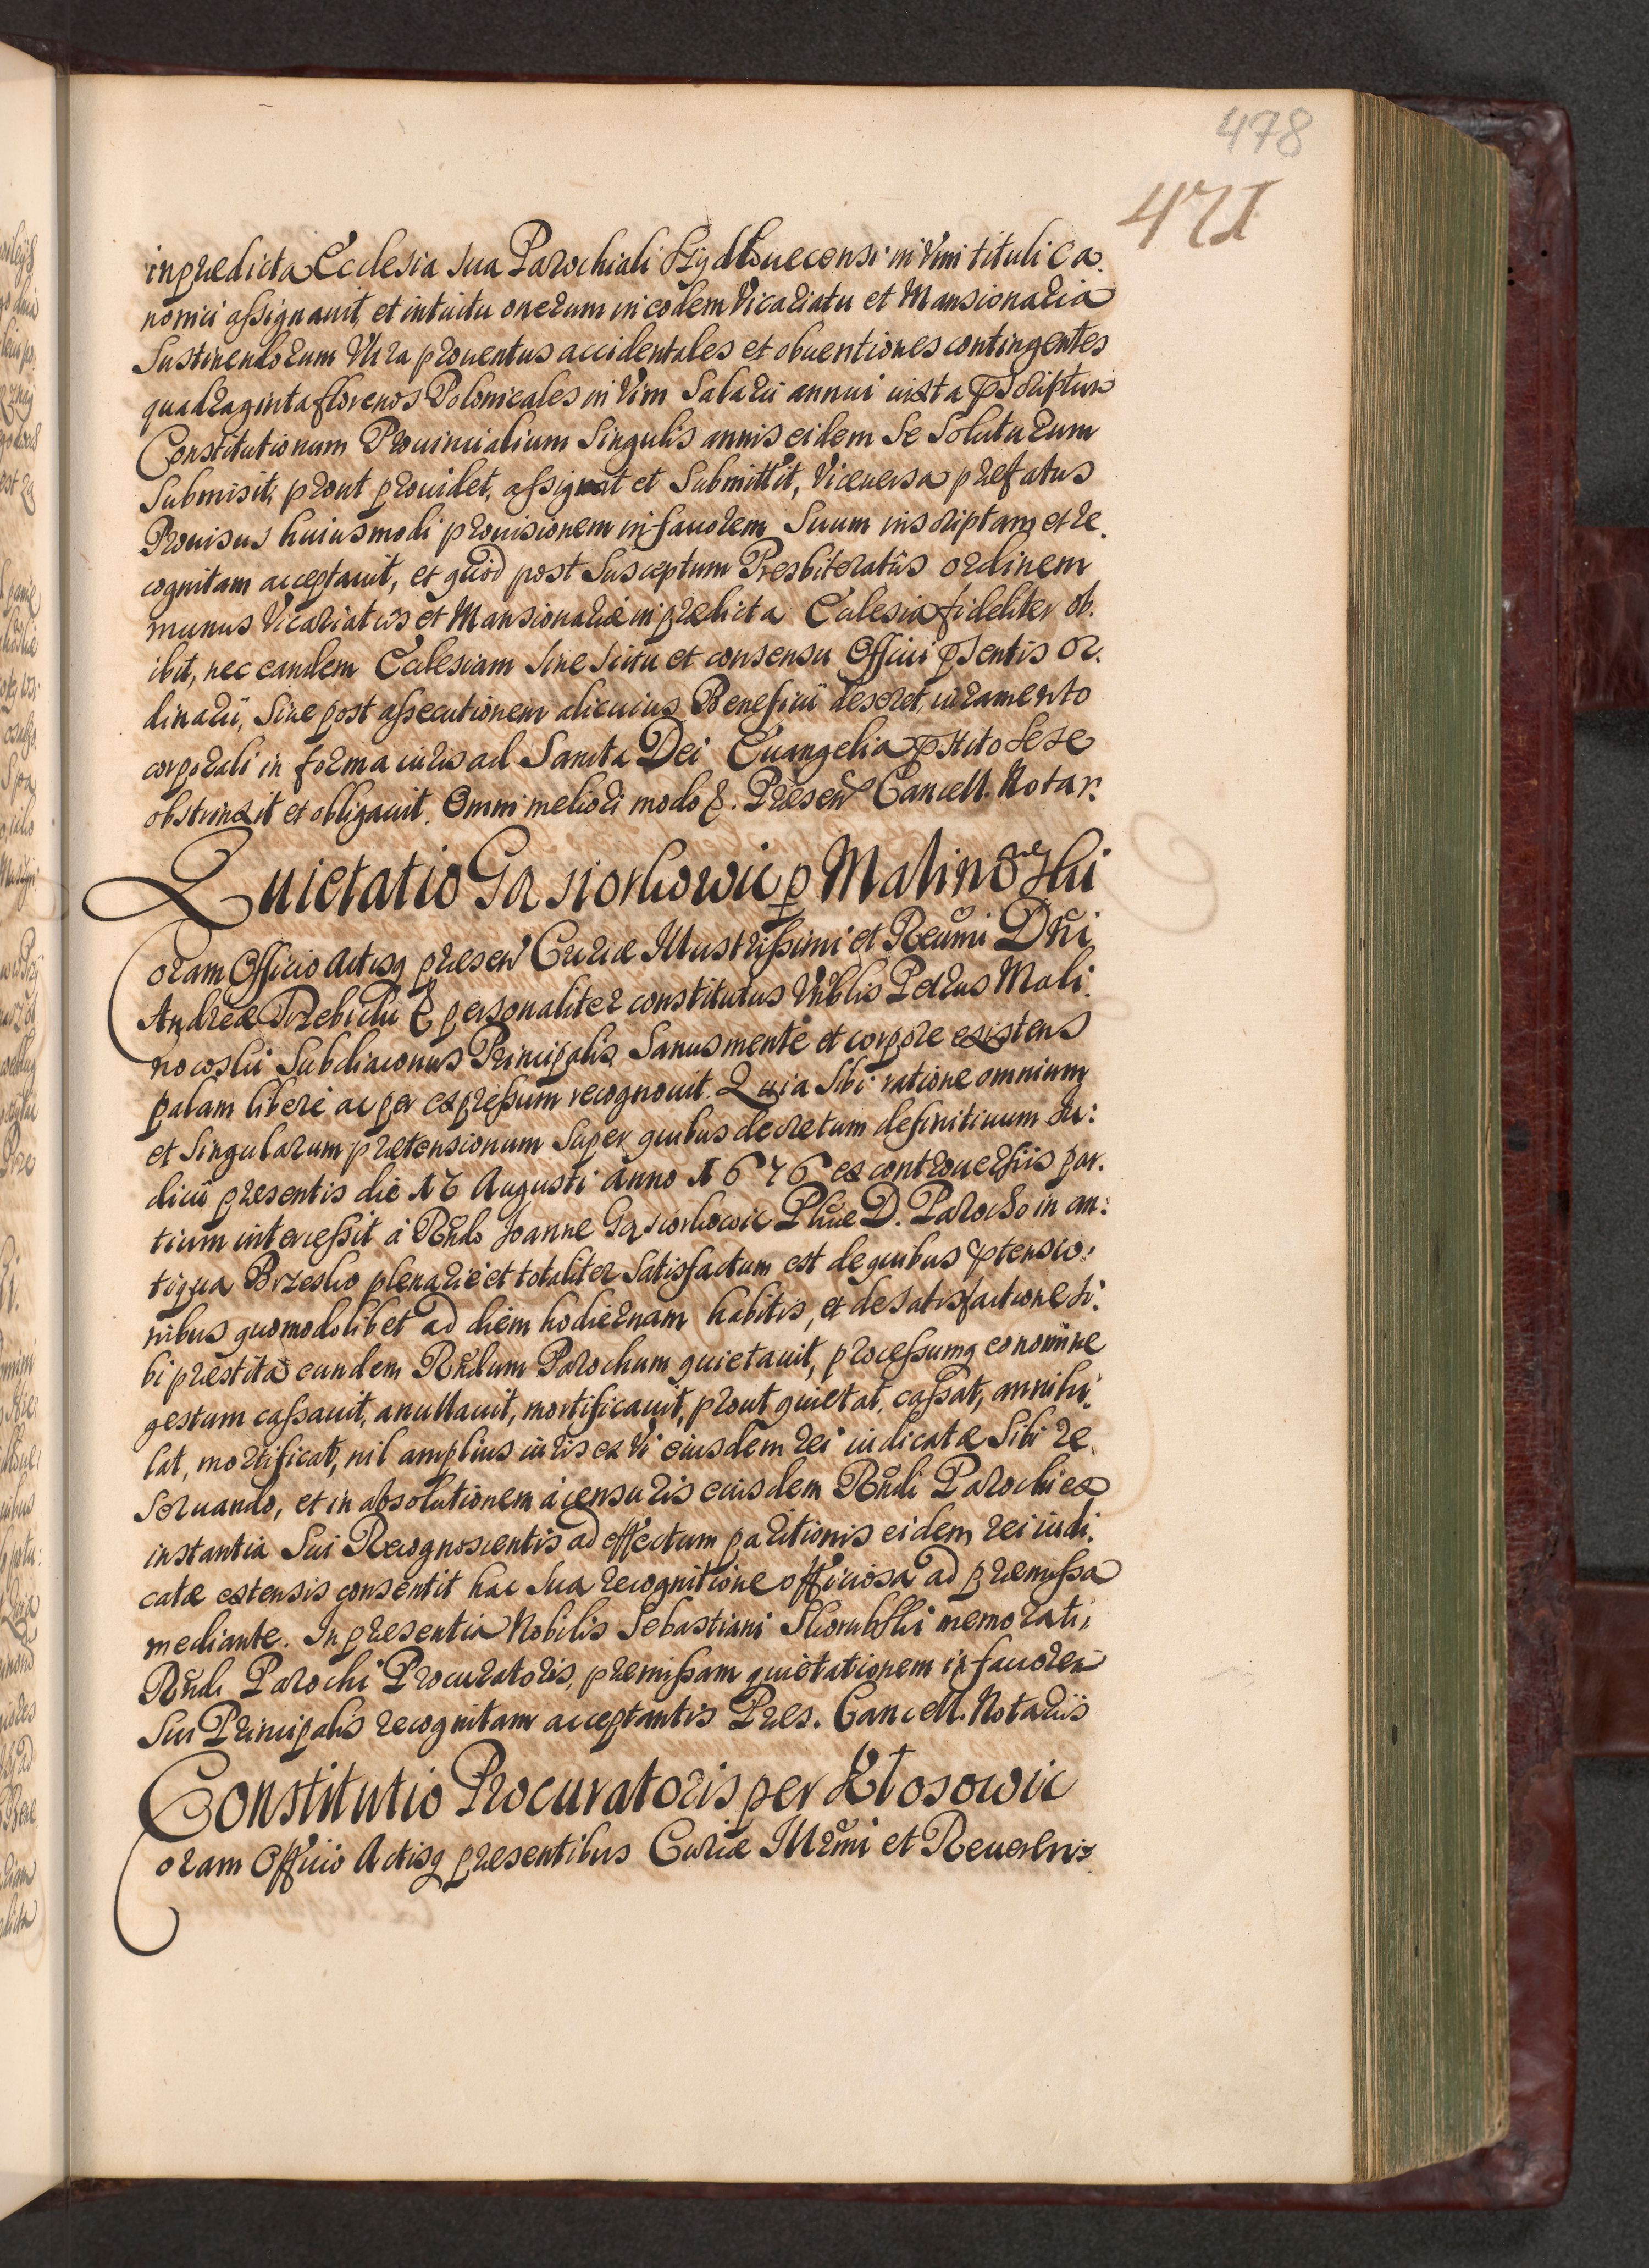 478
471
in praedicta Ecclesia sua Parochiali in Vim tituli Ca.
nonici assignavit, et intuitu onerum in eodem Vicariatu et Mansionaria
Sustinendorum Ultra proventus accidentales et obventiones contingentes
quadraginta florenos Polonicales in Vim Salarii annui iuxta pscriptum
Constitutionum Provincialium Singulis annis eidem Se Soluturum
Submisit, prout providet, assignat et Submittit, Viceversa prefatus
Provisus huiusmodi provisionem in favorem Suum inscriptam et re.
cognitam acceptavit, et quod post Susceptum Presbiteratus ordinem
munus Vicariatus et Mansionariae in praedicta Ecclesia fideliter ob.
ibit, nec eandem Ecclesiam Sine Scitu et consensu Officii psentis Or.
dinarii, Sive post assecutionem alicuius Beneficii deseret, iuramento
corporali in forma iuris ad Sancta Dei Evangelia pstito Sese
obstrinxit et obligavit. Omni meliori modo &. Presen Cancell. Notar.
Quietatio Gąsiorkowic p Malinowski
Coram Officio Actisq presen Curiae Illustrissimi et Reumi Dni
Andreae Trzebicki & personaliter constitutus Vnblis Petrus Mali.
nowski Subdiaconus Principalis, Sanus mente et corpore existens
palam libere ac per expressum recognovit. Quia Sibi ratione omnium
et Singularum praetensionum Super quibus decretum definitivum Iu:
dicii presentis die 17 Augusti Anno 1676 ex controversiis par.
tium intercessit á Rndo Joanne Gąsiorkowic Phiae D. Parocho in an:
tiqua Brzesko plenarie et totaliter Satisfactum est de quibus ptensio:
nibus quomodolibet ad diem hodiernam habitis, et de satisfactione Si.
bi prestita eundem Rndum Parochum quietavit, processumq eo nomine
gestum cassavit, anullavit, mortificavit, prout quietat, cassat, annihi:
lat, mortificat, nil amplius iuris ex Vi eiusdem rei iudicatae Sibi re.
servando, et in absolutionem á censuris eiusdem Rndi Parochi ex
instantia Sui Recognoscentis ad effectum paritionis eidem rei iudi:
catae extensis consentit hac Sua recognitione officiosa ad praemissa
mediante. In presentia Nobilis Sebastiani memorati,
Rndi Parochi Procuratoris, praemissam quietationem in favorem
Sui Principalis recognitam acceptantis Pres. Cancell. Notariis
Constitutio Procuratoris per Kłosowic
Coram Officio Actisq presentibus Curiae Illrmi et Reverendis